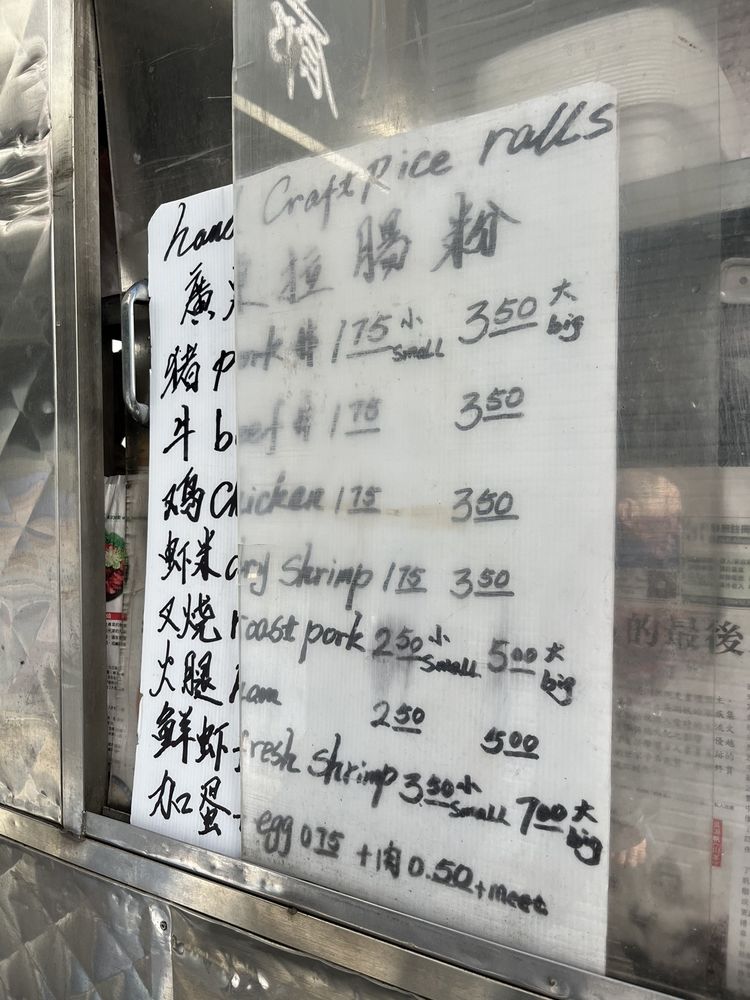 hand Craft Rice ralls
廣東拉腸粉
猪 pork 1 75 小 small 3 50 大 big
牛 beef 1 75 3 50
鸡 chicken 1 75 3 50
虾米 dry shrimp 1 75 3 50
叉燒 roast pork 2 50 小 small 5 00 大 big
火腿 ham 2 50 5 00
鮮虾 fresh shrimp 3.50 小 small 7 00 大 big
加蛋 + egg 0 75 + 肉 0.50 + meet
的最後